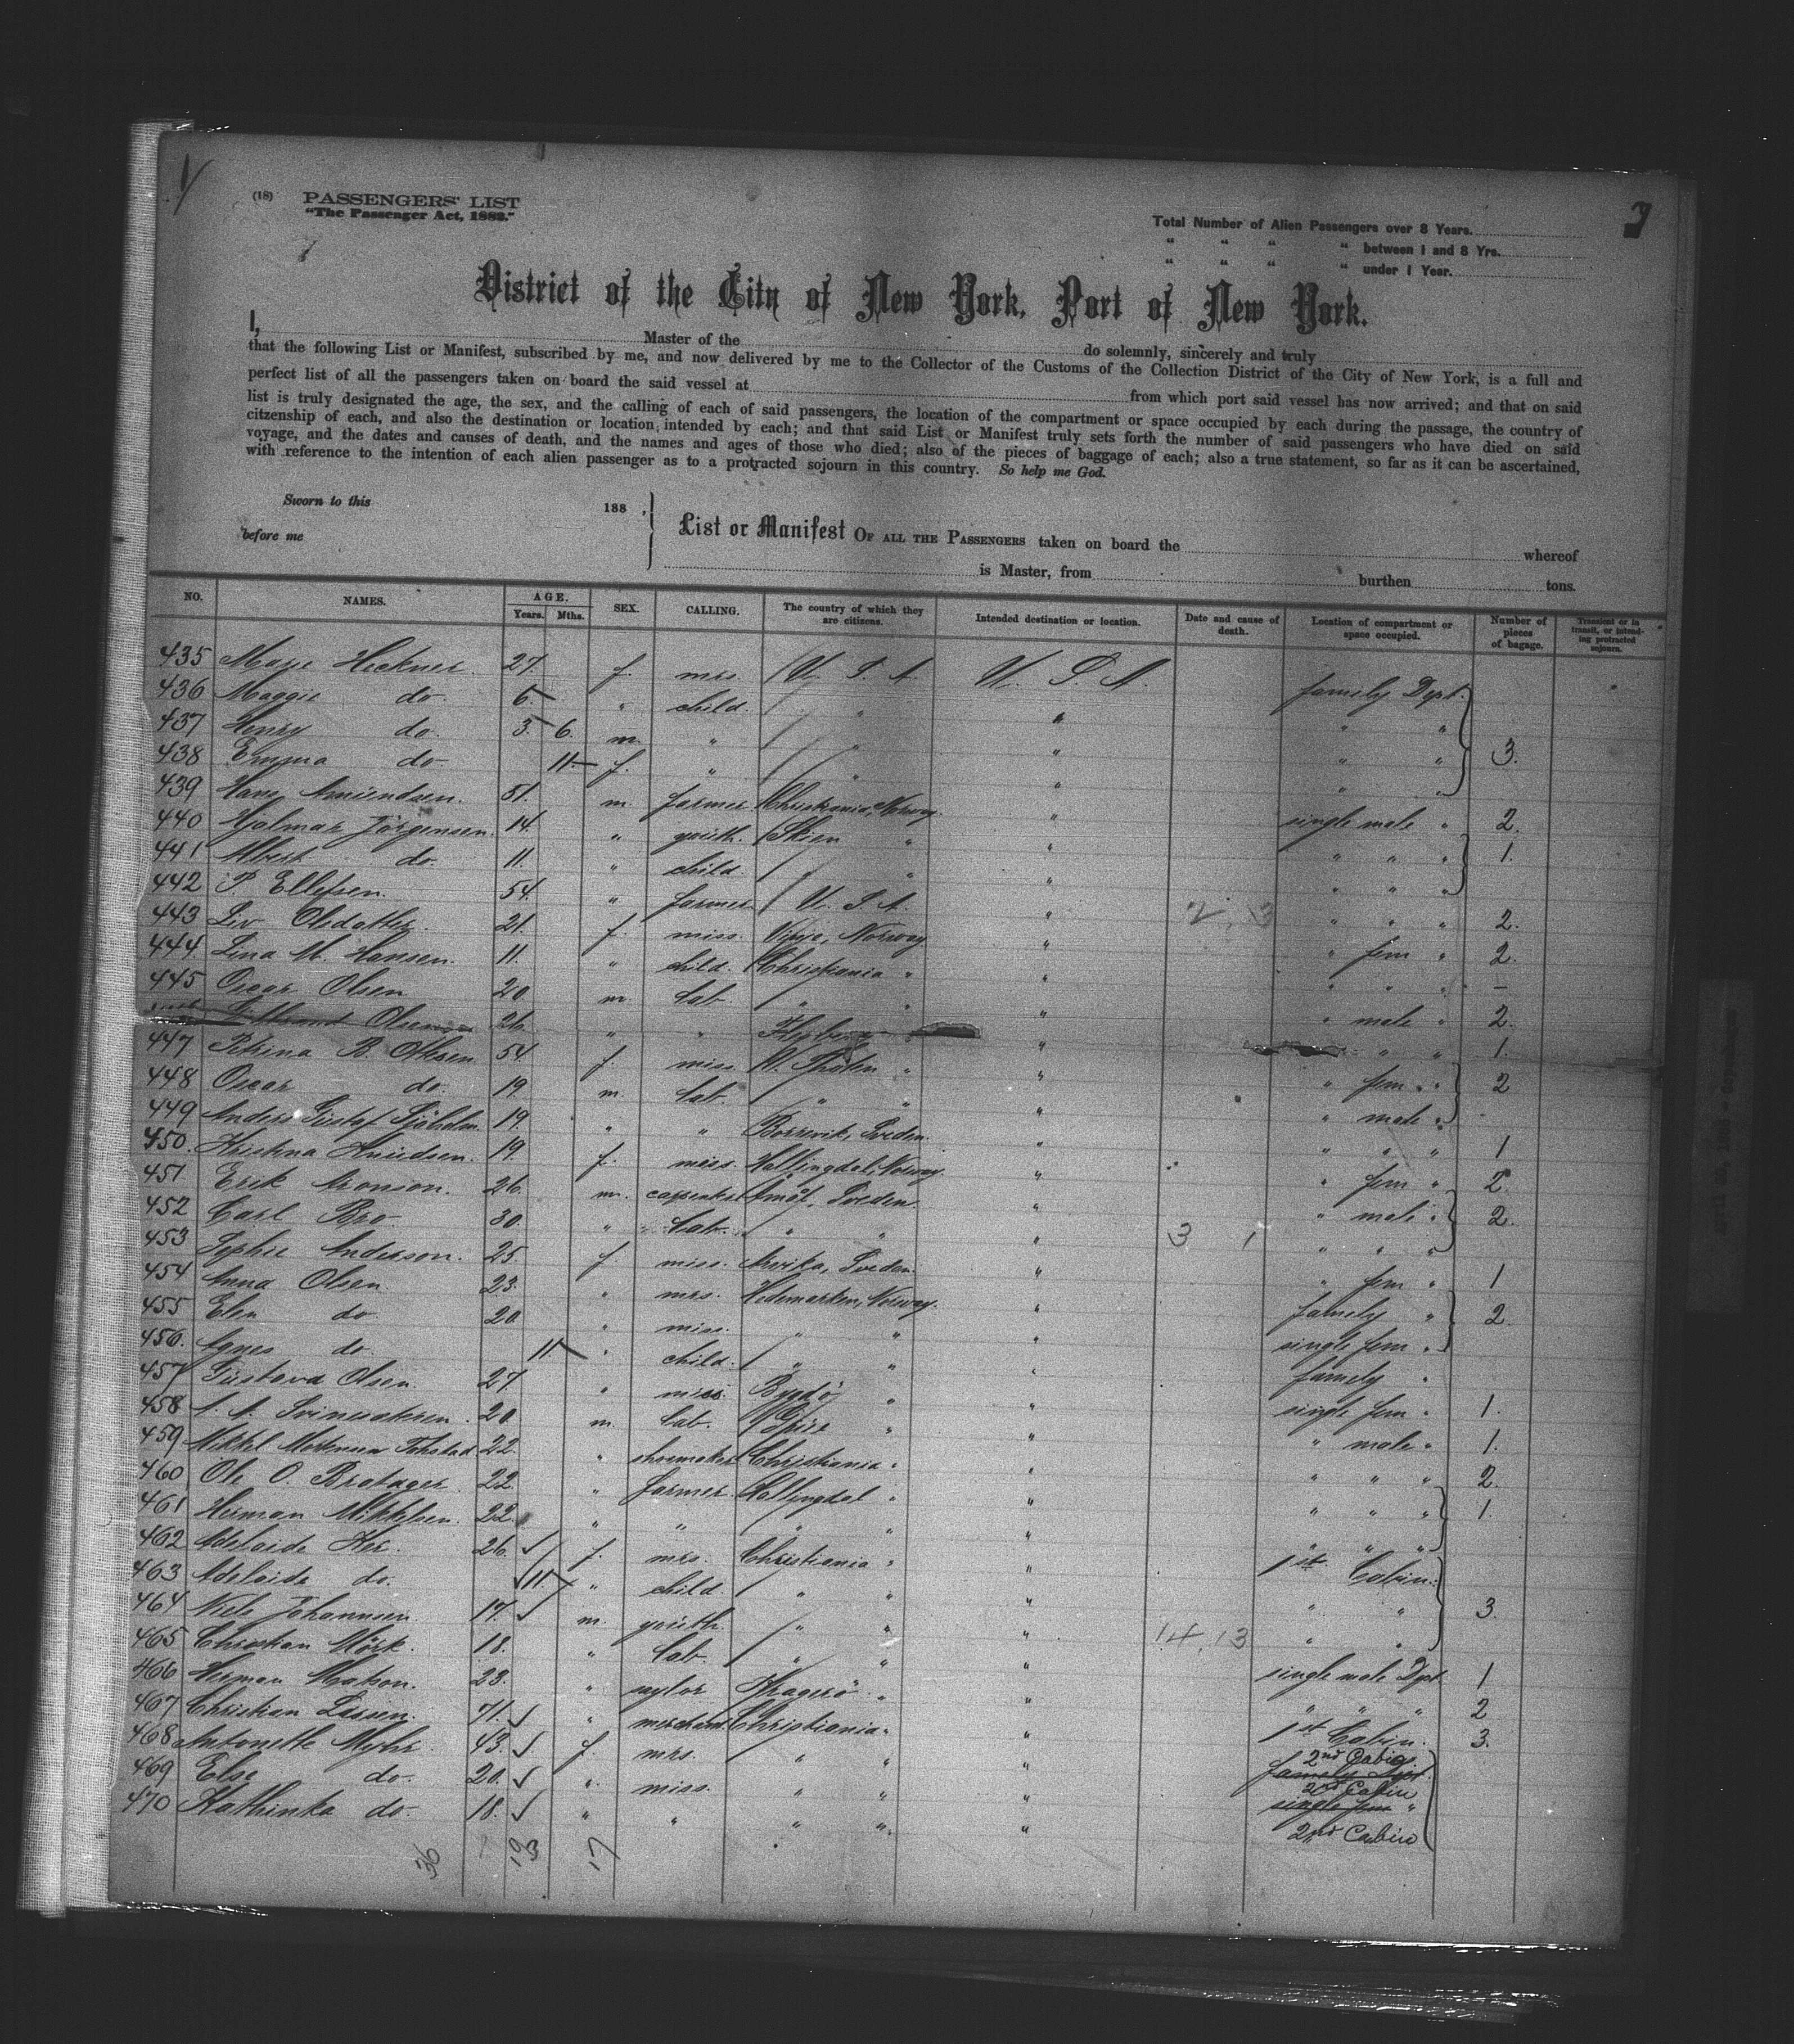 (18) PASSENGERS' LIST
"The Passenger Act, 1882."
Total Number of Alien Passengers over 8 Years.
" " " " between 1 and 8 Yrs.
" " " " under 1 Year.
District of the City of New York, Port of New York.
I, Master of the do solemnly, sincerely and truly
that the following List or Manifest, subscribed by me, and now delivered by me to the Collector of the Customs of the Collection District of the City of New York, is a full and
perfect list of all the passengers taken on board the said vessel at from which port said vessel has now arrived; and that on said
list is truly designated the age, the sex, and the calling of each of said passengers, the location of the compartment or space occupied by each during the passage, the country of
citzenship of each, and also the destination or location intended by each; and that said List or Manifest truly sets forth the number of said passengers who have died on said
voyage, and the dates and causes of death, and the names and ages of those who died; also of the pieces of baggage of each; also a true statement, so far as it can be ascertained,
with reference to the intention of each alien passenger as to a protracted sojourn in this country. So help me God.
Sworn to this 188 ,
before me
List or Manifest OF ALL THE PASSENGERS taken on board the whereof
is Master, from burthen tons.
NO. NAMES. AGE. Years. Mths. SEX. CALLING. The country of which they are citizens. Intended destination or location. Date and cause of death. Location of compartment or space occupied. Number of pieces of bagage. Transient or in transit, or intending protracted sojourn.
435 Marie Heckner 27. f. mrs. U. S. A. U. S. A. family Dept.
436 Maggie do. 5 " child. " " " "
437 Henry do. 3 6. m. " " " " " 3.
438 Emma do 11 f. " " " " "
439 Hans Amundsen. 51. m. farmer Christiania, Norway " single male " 2.
440 Hjalmar Jörgensen. 14. " youth. Skien " " " " " 1.
441 Albert do. 11. " child. " " " " " "
442 P. Ellefsen. 54. " farmer U. S. A. " " " " 2.
443 Liv Olsdatter. 21. f. miss. Vinje, Norway. " " fem " 2.
444 Lina M. Hansen. 11. " child. Christiania " " " " " –
445 Oscar Olsen 20 m. Lab. " " " " male " 2.
Olsen 26. " " " " " 1.
447 Petrina B. Olsen 54. f. miss " " " fem " 2
448 Oscar do. 19. m. Lab. " " " " male "
449 Anders Gustaf Sjöholm 19. " " Sweden. " " " " 1
450. Kristina Knudsen. 19. f. miss. Hallingdal, Norway. " " fem " 2.
451. Erik Aronson. 26. m. carpenter Åmål, Sweden. " " male " 2.
452 Carl Bro 30. " Lab. " " " " " "
453 Sophie Anderson. 25. f. miss. Arvika, Sweden. " " fem " 1
454 Anna Olsen 23. " mrs. Hedemarken, Norway. " family " 2.
455 Elen do 20. " miss. " " " single fem "
456. Agnes do. 11 " child. " " " family "
457 Gustava Olsen. 27. " miss. Bygdö " " single fem " 1.
458 20 m. Lab. " " " male " 1.
459 Mikkel Mortensen 22. " shoemaker Christiania " " " " " 2.
460 Ole O. Bratager 22. " farmer. Hallingdal " " " " " 1.
461 Herman Mikkelsen. 22. " " " " " " " "
462 Adelaide Ker. 26. f. mrs. Christiania " " 1st Cabin.
463 Adelaide do. 11. " child " " " " " 3
464 Niels Johannsen 17. m. youth. " " " " "
465 Christian Mörk. 18. " Lab. " " " single male Dept. 1
466 Herman Matson. 23. " saylor Kragerö " " " " " 2
467 Christian Larsen. 71. " merchant Christiania " " 1st Cabin. 3.
468 Antonette Myhr. 43. f. mrs. " " " 2nd Cabin
family Dept.
469 Elsa do. 20. " miss. " " " 2nd Cabin
single fem "
470 Kathinka do. 18. " " " " " 2nd Cabin
36 193 17